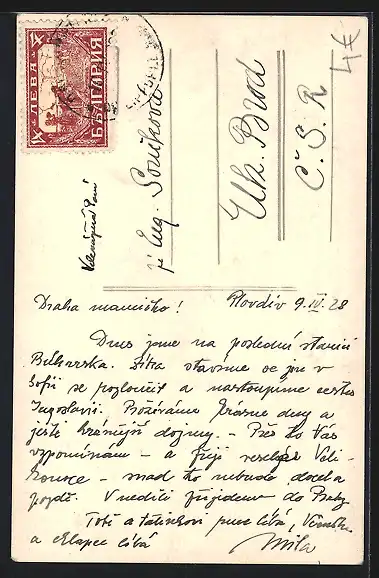 1 ЛЕВА 1
БЪЛГАРИЯ
Velevážená Paní
Eug.
Uh. Brod
Č. S. R
4€
Drahá mamičko! Plovdiv 9. IV. 28
Dnes jsme na poslední stanici
Bulharska. Zítra stavíme se jen v
Sofii se rozloučit a nastoupíme cestu
Jugoslavií. Prožíváme krásné dny a
ještě krásnější dojmy. – Přes to Vás
vzpomínám – a přeji veselé Veli-
konoce – snad to nebude docela
pozdě. V neděli přijedeme do Prahy
Tobě a tatínkovi ruce líbá,
a chlapce líbá Míla